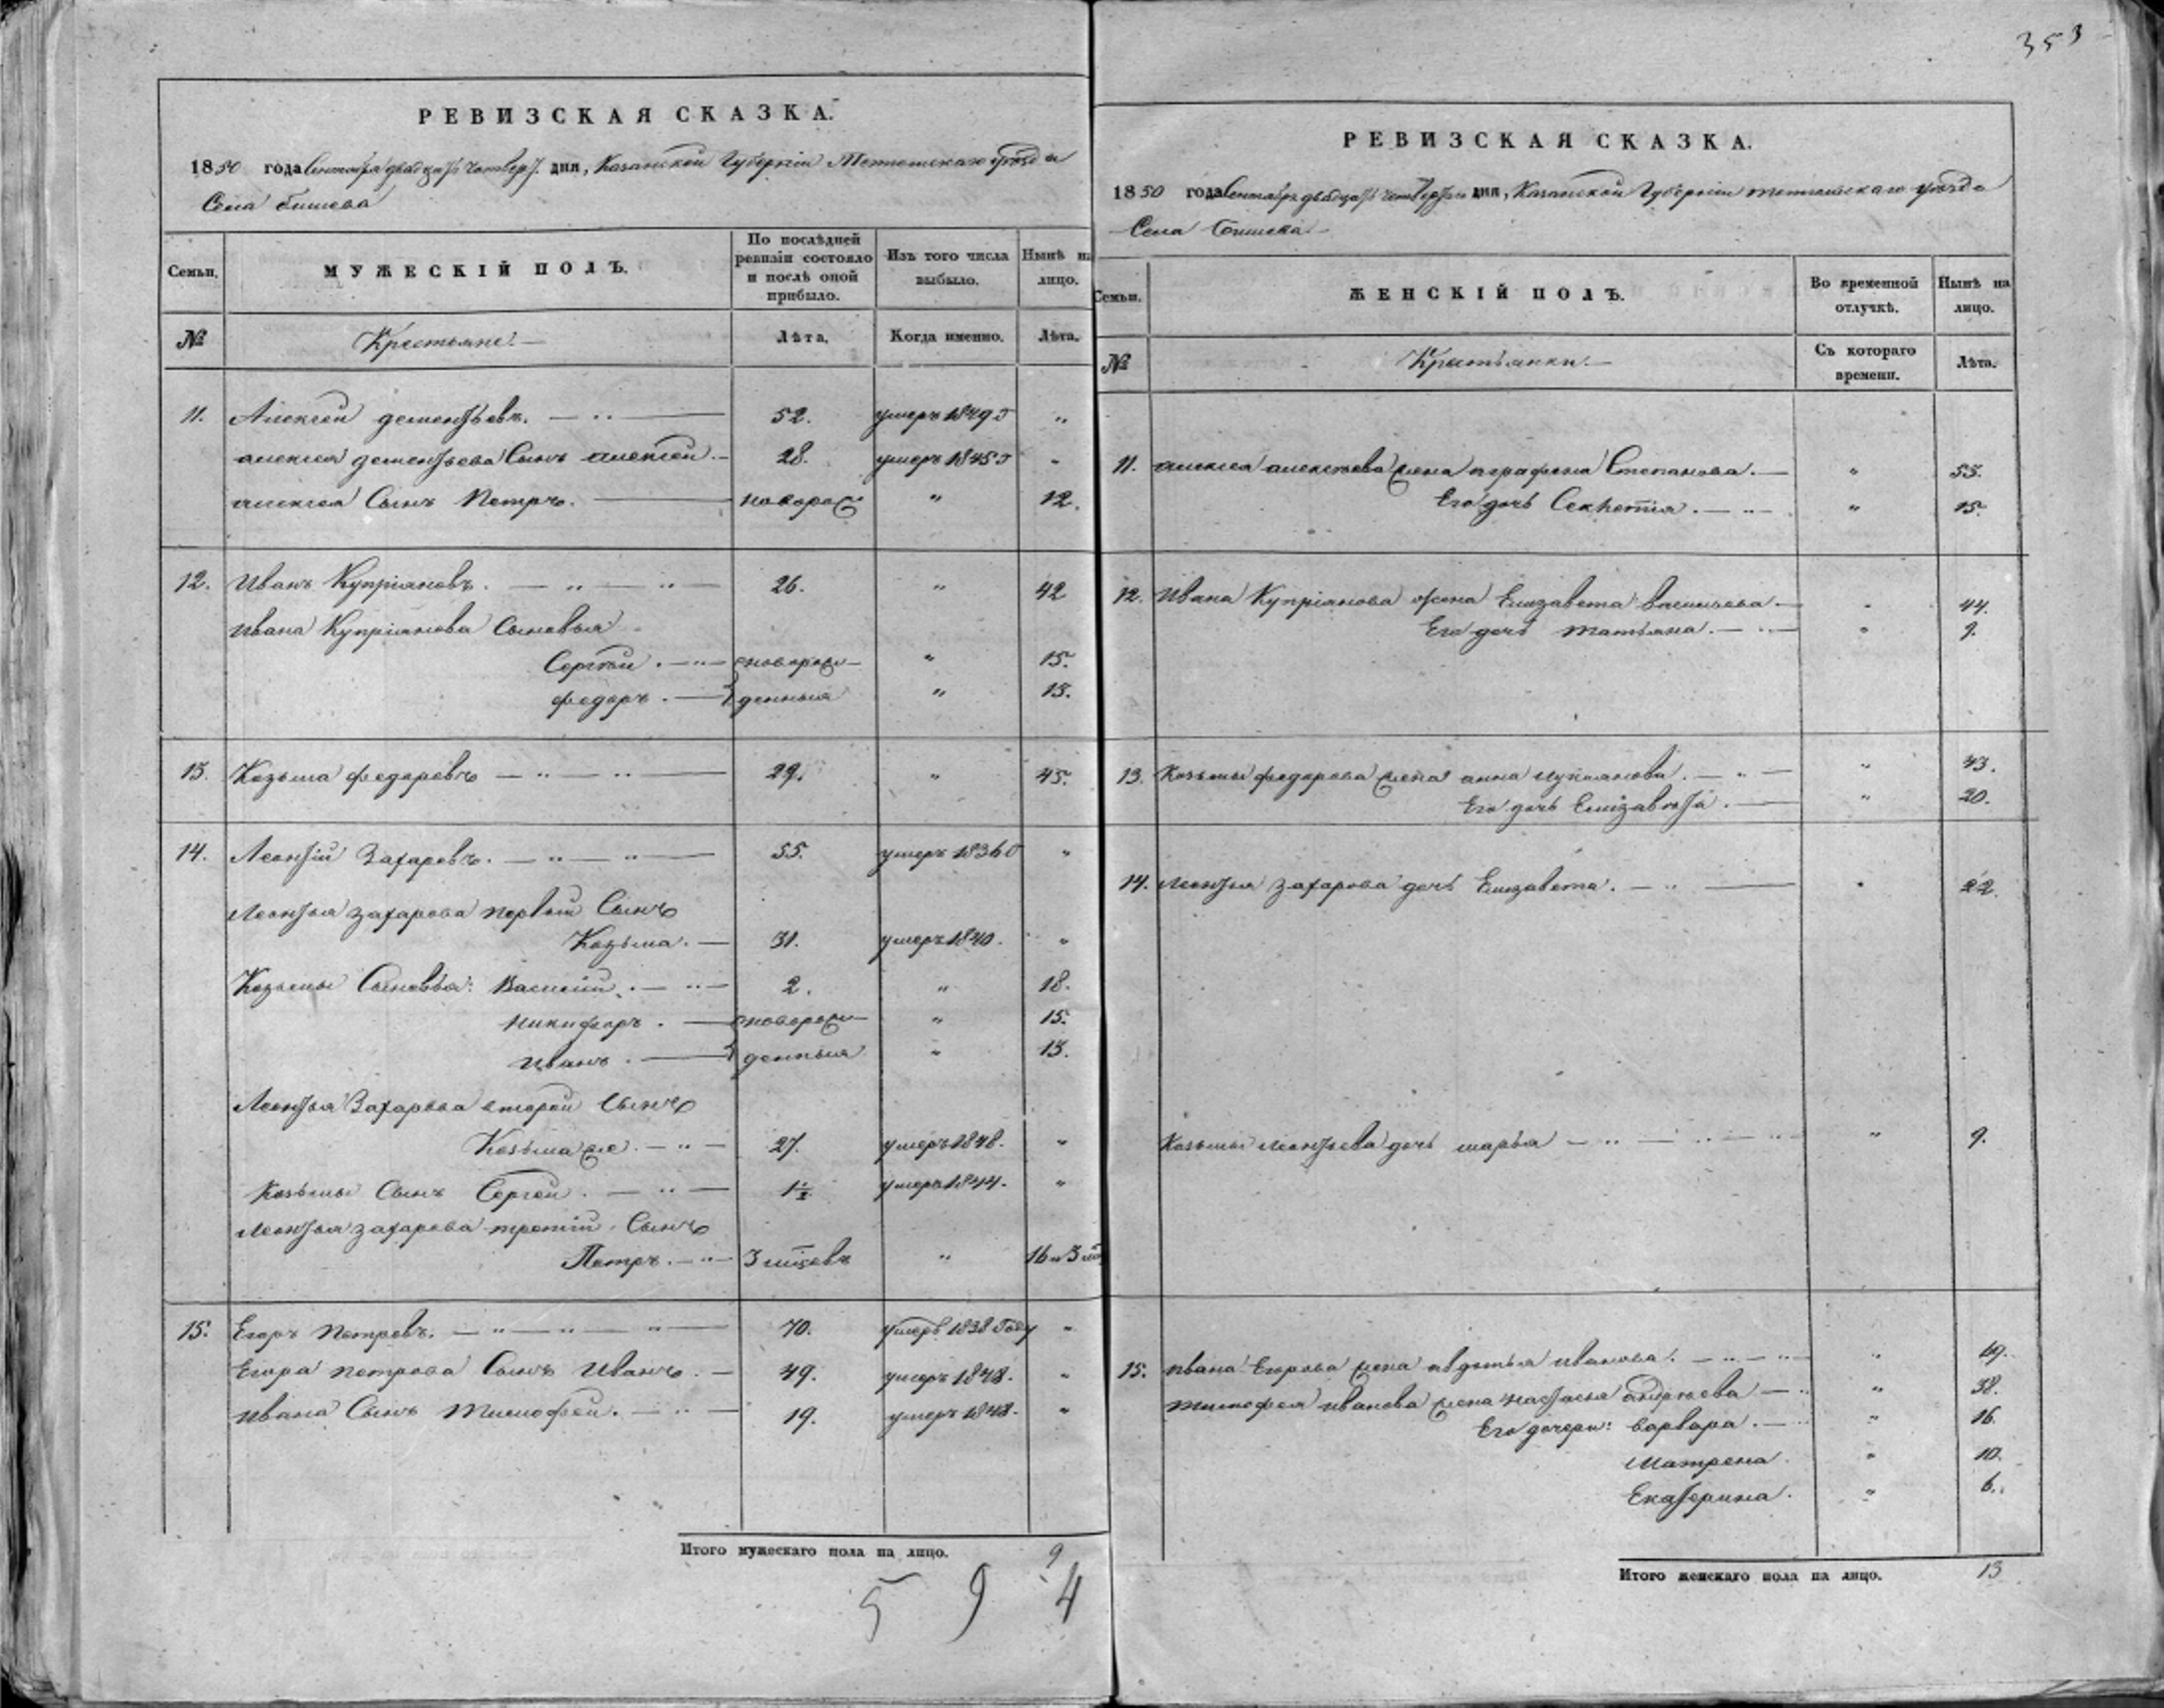 353
РЕВИЗСКАЯ СКАЗКА.
1850 года Сентября двадцать четверт. дня, Казанской Губерніи Тетюшскаго уезда
Села Бишева
Семьи. МУЖЕСКІЙ ПОЛЪ. По послѣдней ревизіи состояло и послѣ оной прибыло. Изъ того числа выбыло. Нынѣ на лицо.
№ Крестьяне. Лѣта. Когда именно. Лѣта.
11. Алексей дементьевъ. — " — 52. умеръ 1849 г "
алексея дементьева Сынъ алексей. — 28. умеръ 1845 г "
алексея Сынъ Петръ. — новорож " 12.
12. Иванъ Купріяновъ. — " — " — 26. " 42
Ивана Купріянова Сыновья
Сергей. — " — новорож— " 15.
федоръ. — денныя " 13.
13. Козьма федоровъ — " — " — 29. " 45.
14. Леонтій Захаровъ. — " — " — 55. умеръ 1836 "
Леонтья захарова первой Сынъ
Козьма. — 31. умеръ 1840. "
Козьмы Сыновья: Василій. — " — 2. " 18.
никифоръ. — новорож— " 15.
иванъ. — денныя " 13.
Леонтья Захарова второй Сынъ
Козьма же. — " — 27. умеръ 1848. "
Козьмы Сынъ Сергей. — " — 1½ умеръ 1844. "
Леонтья захарова третій Сынъ
Петръ. — " — 3 мѣсцовъ " 16 и 3 мѣс
15. Егоръ Петровъ. — " — " — " — 70. умеръ 1838 году "
Егора петрова Сынъ Иванъ. — 49. умеръ 1848. "
Ивана Сынъ Тимофей. — " — 19. умеръ 1848. "
Итого мужескаго пола на лицо. 9
5 9 4
РЕВИЗСКАЯ СКАЗКА.
1850 года Сентября двадцать четвертаго дня, Казанской Губерніи тетюшскаго уезда
Села Бишева.
Семьи. ЖЕНСКІЙ ПОЛЪ. Во временной отлучкѣ. Нынѣ на лицо.
№ Крестьянки. — Съ котораго времени. Лѣта.
11. алексея алексеева жена аграфена Степанова. — " 55.
Его дочь Секлетія. — " — " 15.
12. Ивана Купріянова жена Елизавета васильева. — " 44.
Его дочь татьяна. — " — " 9.
13. Козьмы федорова жена анна лукианова. — " — " 43.
Его дочь Елизавета. — " 20.
14. Леонтья захарова дочь Елизавета. — " — " 22.
Козьмы леонтьева дочь марья — " — " — " " 9.
15. ивана Егорова жена авдотья иванова. — " — " " 69.
тимофея иванова жена настасья андреева — " " 38.
Его дочери: варвара. — " " 16.
Матрена. " 10.
Екатерина. " 6.
Итого женскаго пола на лицо. 13